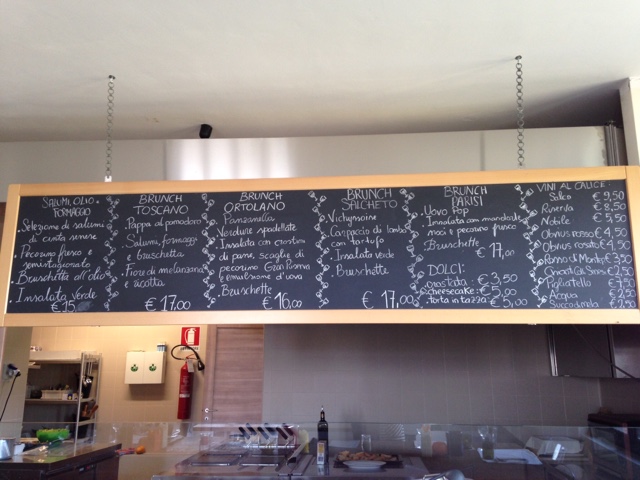 SALUMI, OLIO
FORMAGGIO
Selezione di salumi
di cinta senese
Pecorino fresco e
semistagionato
Bruschetta all'olio
Insalata Verde
€ 15
BRUNCH
TOSCANO
Pappa al pomodoro
Salumi, formaggi
e bruschetta
Fiori di melanzana
e ricotta
€ 17,00
BRUNCH
ORTOLANO
Panzanella
Verdure spadellate
Insalata con crostini
di pane, scaglie di
pecorino Gran Riserva
e emulsione d'uova
Bruschette
€ 16,00
BRUNCH
SALCHETO
Vichyssoise
Carpaccio di lombo
con tartufo
Insalata verde
Bruschette
€ 17,00
BRUNCH
PARISI
Uovo Pop
Insalata con mandorle,
noci e pecorino fresco
Bruschette
€ 17,00
DOLCI:
crostata: € 3,50
cheesecake: € 5,00
torta in tazza: € 5,00
VINI AL CALICE:
Salco € 9,50
Riserva € 8,50
Nobile € 5,50
Obvius rosso € 4,50
Obvius rosato € 4,50
Rosso di Monte € 3,50
€ 3,50
€ 3,50
Acqua € 2,50
Succo di mela € 2,50